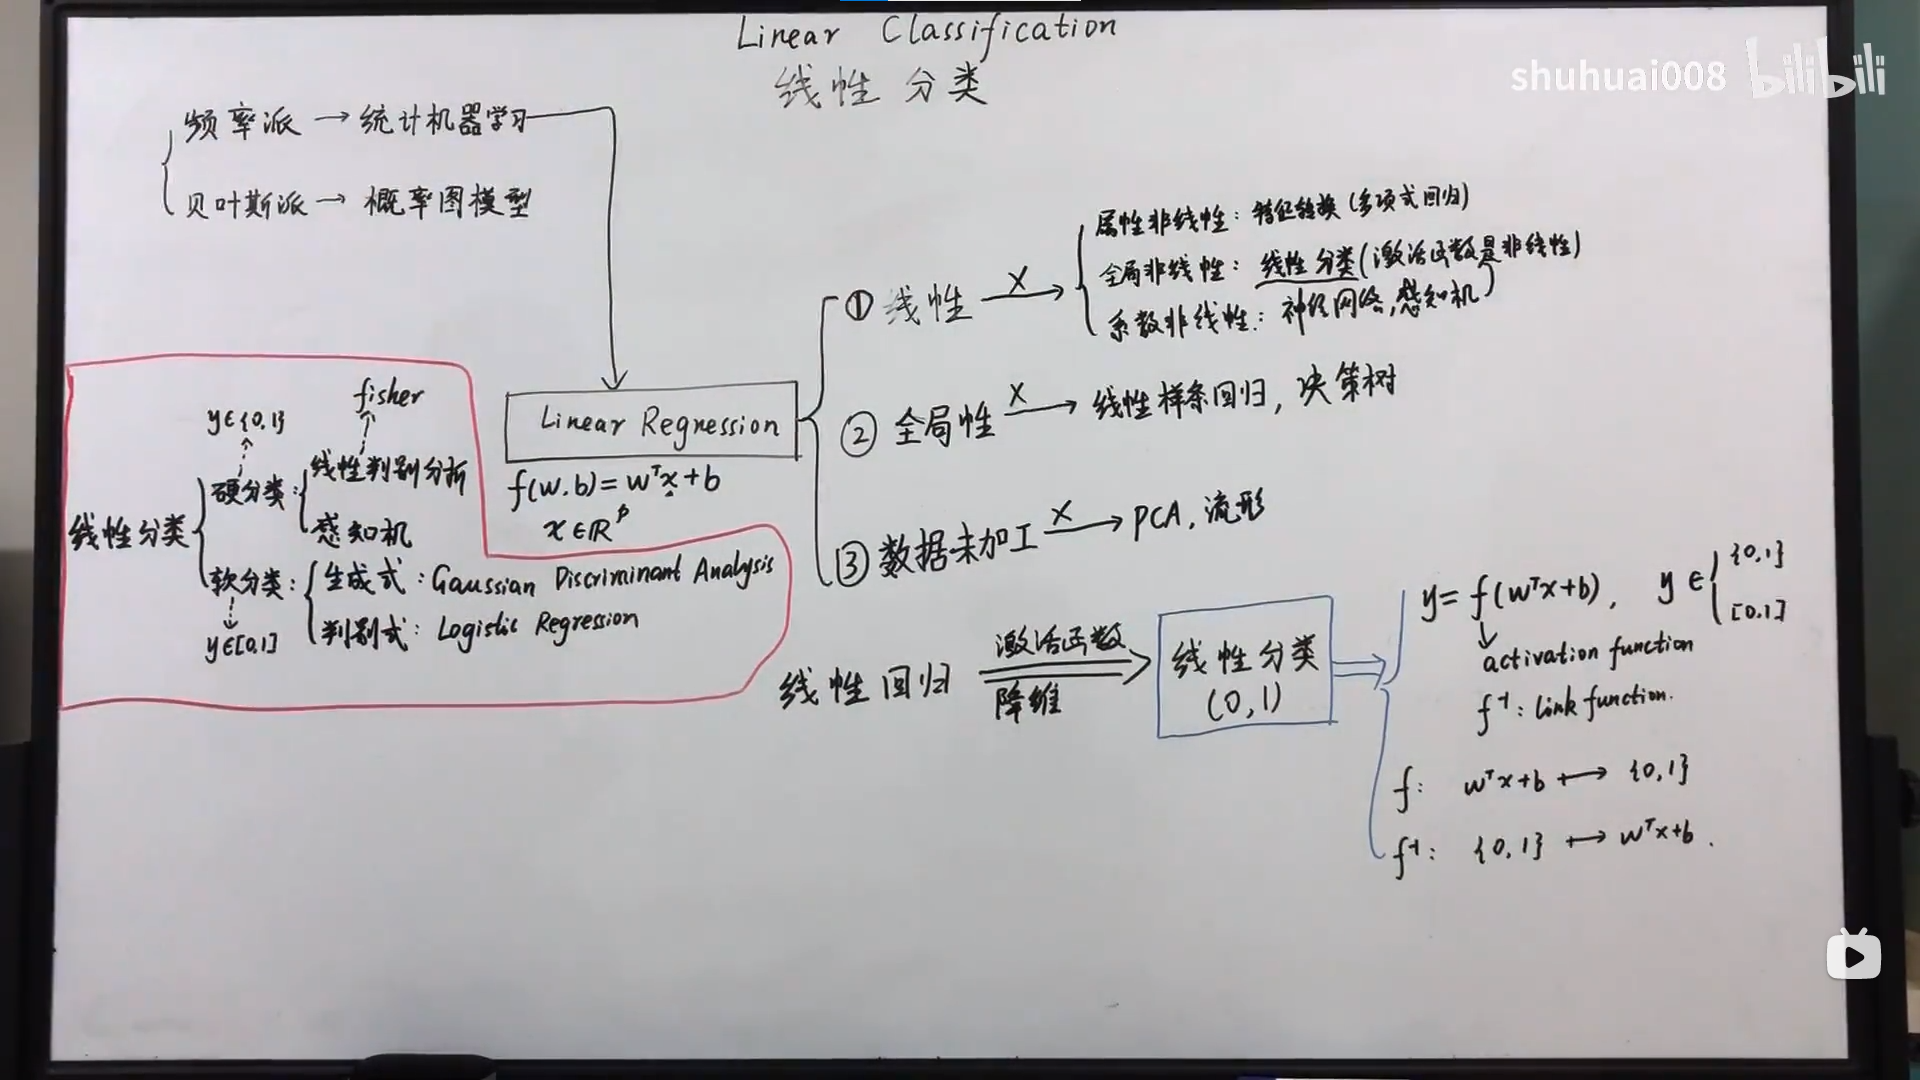 Linear Classification
线性分类
shuhuai008 bilibili
频率派 → 统计机器学习
贝叶斯派 → 概率图模型
Linear Regression
f(w.b) = wᵀx + b
x ∈ ℝᵖ
① 线性 —X→
属性非线性: 特征转换 (多项式回归)
全局非线性: 线性分类 (激活函数是非线性)
系数非线性: 神经网络, 感知机
② 全局性 —X→ 线性样条回归, 决策树
③ 数据未加工 —X→ PCA, 流形
线性分类
y∈{0,1}
fisher
硬分类:
线性判别分析
感知机
软分类:
y∈[0,1]
生成式: Gaussian Discriminant Analysis
判别式: Logistic Regression
线性回归
激活函数
降维
线性分类
(0,1)
y = f(wᵀx+b), y ∈ { {0,1}
[0,1]
activation function
f⁻¹: link function.
f: wᵀx+b ↦ {0,1}
f⁻¹: {0,1} ↦ wᵀx+b.